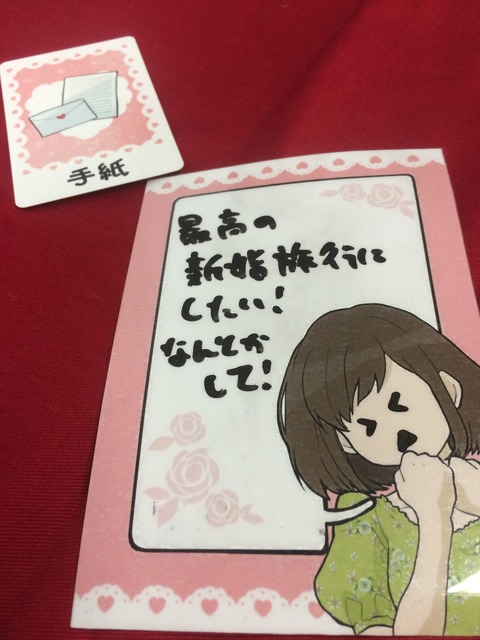 手紙
最高の
新婚旅行に
したい!
なんとか
して!